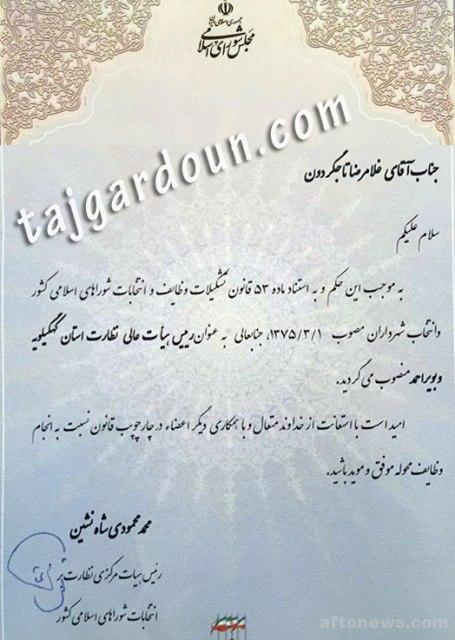 جمهوری اسلامی ایران
مجلس شورای اسلامی
tajgardoun.com
جناب آقای غلامرضا تاجگردون
سلام علیکم
به موجب این حکم و به استناد ماده ۵۳ قانون تشکیلات وظایف و انتخابات شوراهای اسلامی کشور
وانتخاب شهرداران مصوب ۱۳۷۵/۳/۱، جنابعالی به عنوان رییس هیأت عالی نظارت استان کهگیلویه
وبویراحمد منصوب می گردید.
امید است با استعانت از خداوند متعال و با همکاری دیگر اعضاء در چارچوب قانون نسبت به انجام
وظایف محوله موفق و موید باشید.
محمد محمودی شاه نشین
رئیس هیات مرکزی نظارت بر
انتخابات شوراهای اسلامی کشور
aftonews.com